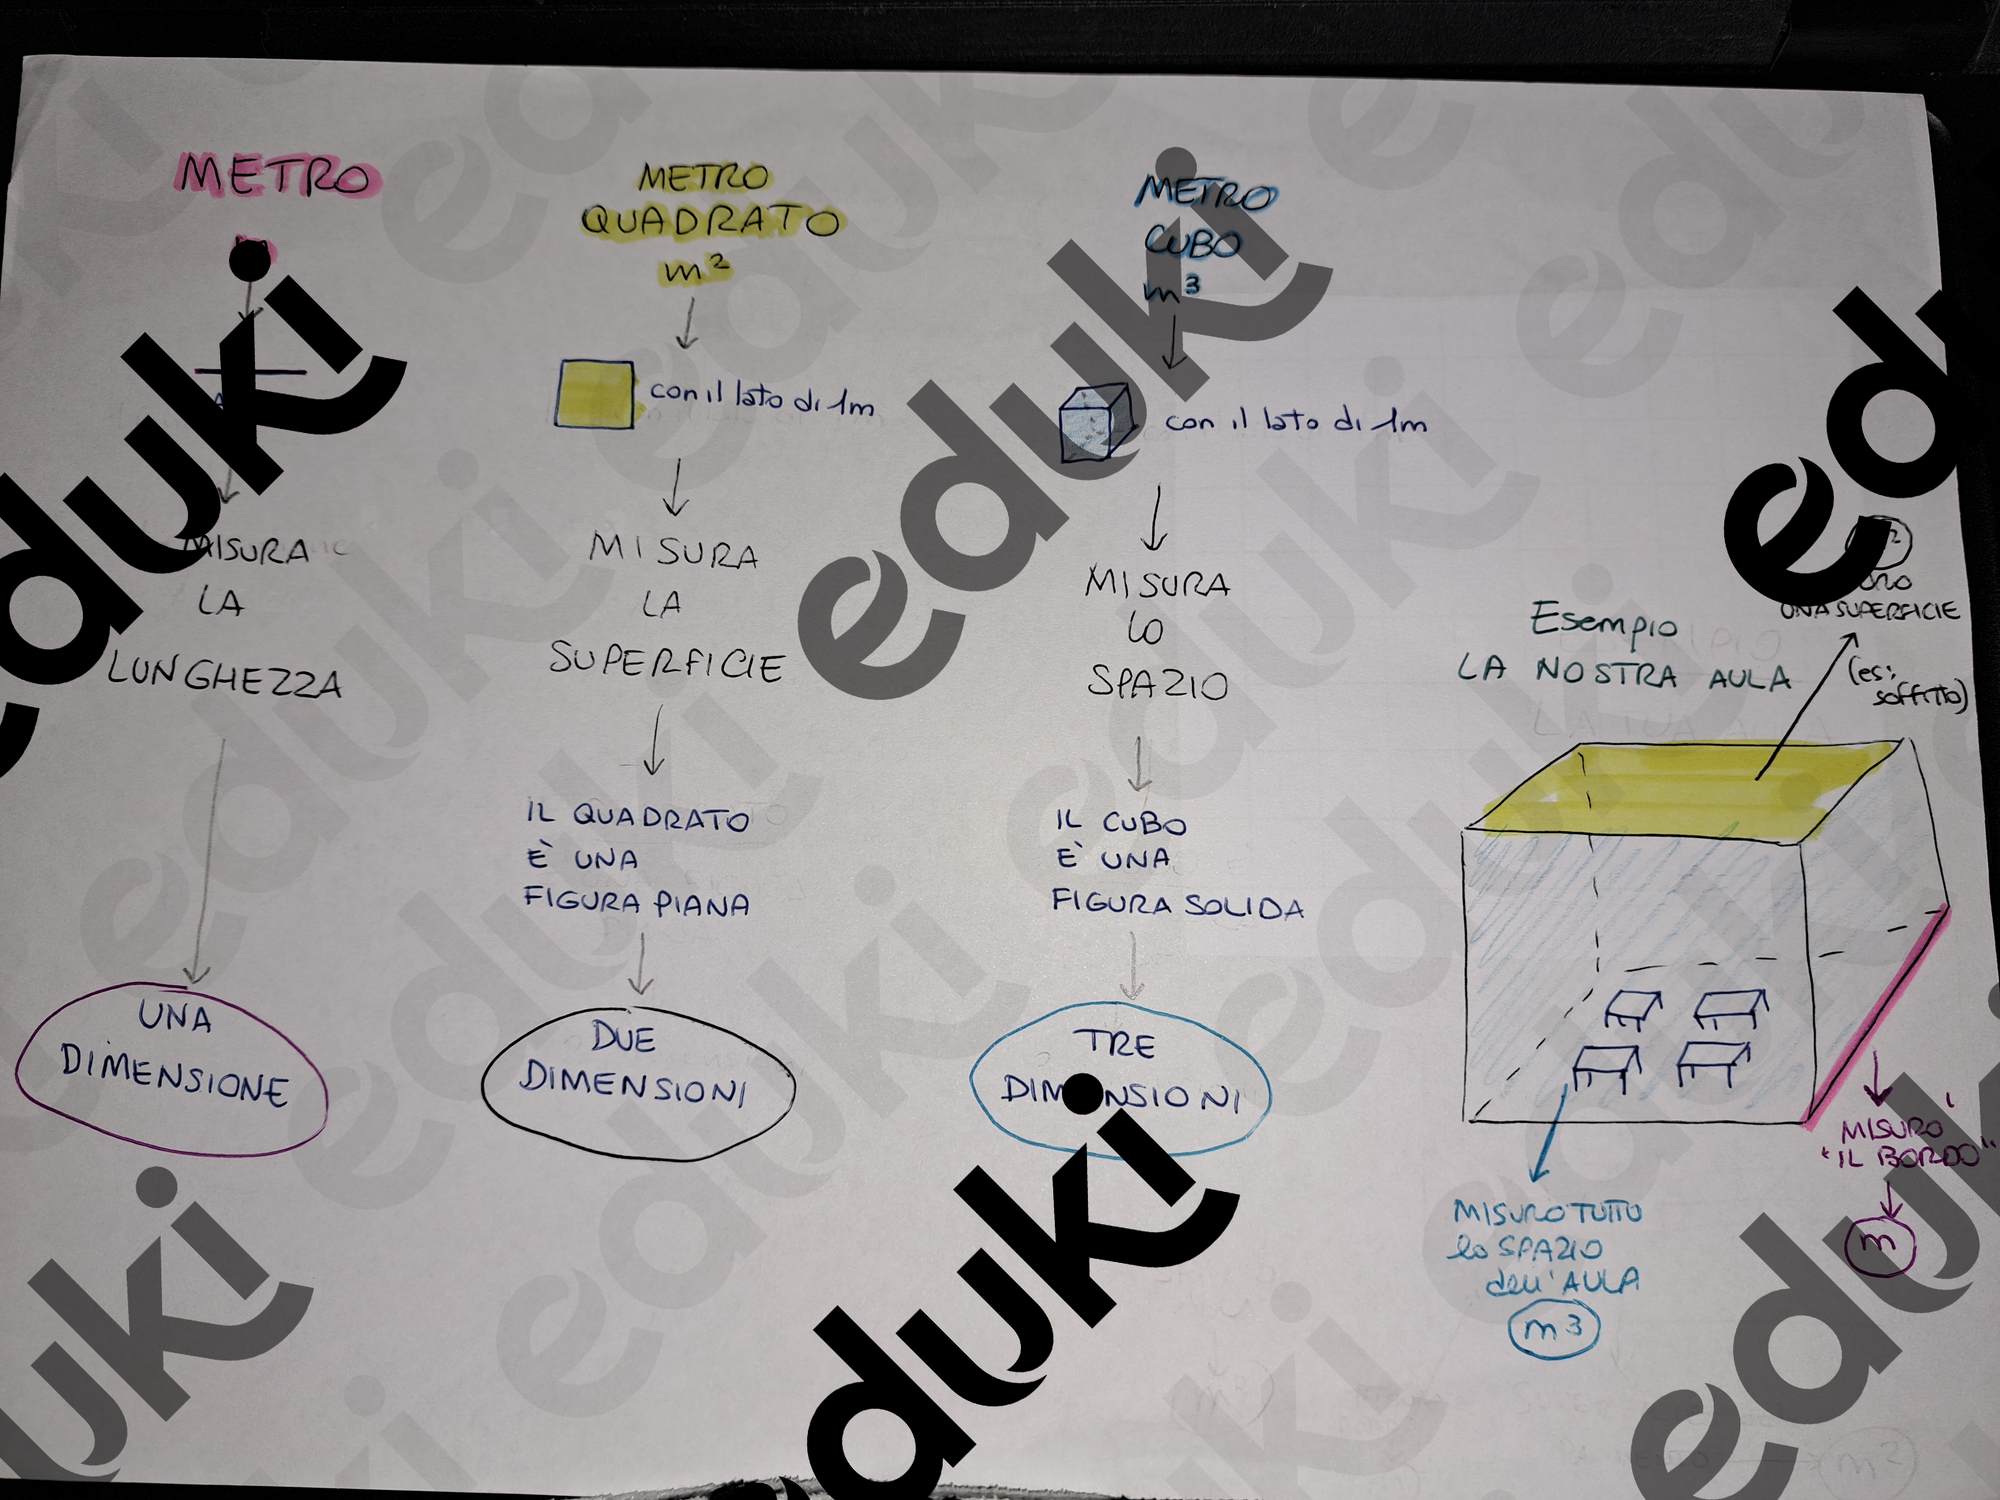 METRO
MISURA
LA
LUNGHEZZA
UNA
DIMENSIONE
METRO
QUADRATO
m²
con il lato di 1m
MISURA
LA
SUPERFICIE
IL QUADRATO
È UNA
FIGURA PIANA
DUE
DIMENSIONI
METRO
CUBO
m³
con il lato di 1m
MISURA
LO
SPAZIO
IL CUBO
È UNA
FIGURA SOLIDA
TRE
DIMENSIONI
Esempio
LA NOSTRA AULA
UNA SUPERFICIE
(es:
soffitto)
MISURO
"IL BORDO"
m
MISURO TUTTO
lo SPAZIO
dell'AULA
m3
eduki
eduki
eduki
eduki